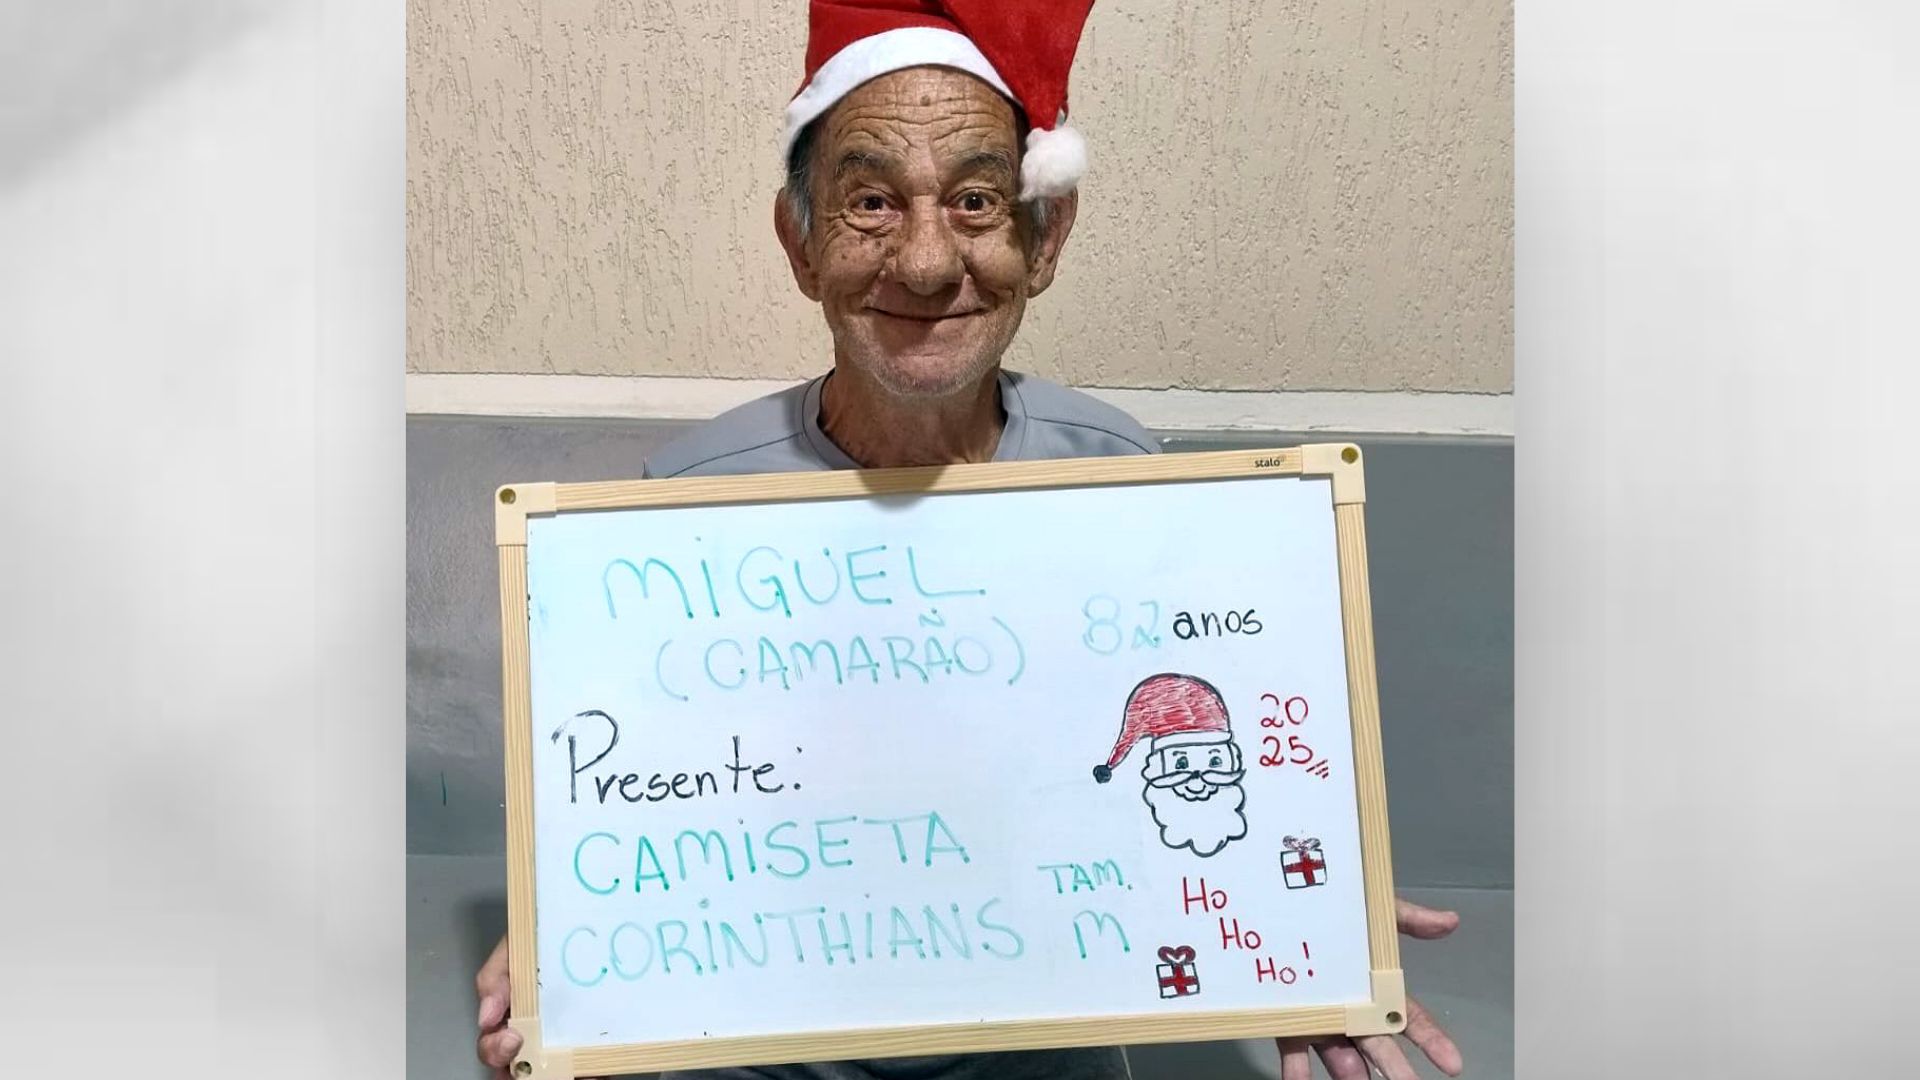 stalo
MiGUEL
(CAMARÃO)
82 anos
Presente:
20
25
CAMiSETA
CORiNTHiANS
TAM.
M
Ho
Ho
Ho!